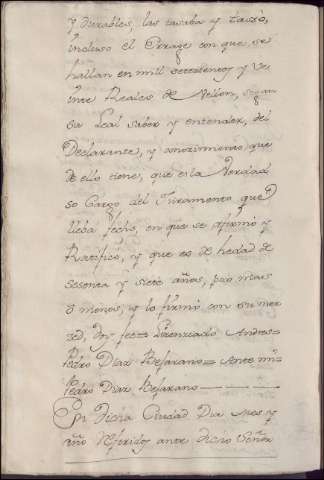 y durables, las tasaba y tassó,
incluso el Errage con que se
hallan en mill settezientos y ve
inte Reales de Vellon, segun
su Leal saber y entender, del
Declarante, y conozimiento que
de ello tiene, que es la Verdad
so Cargo del Juramento que
lleba fecho, en que se afirmó y
Ratificó, y que es de hedad de
sesenta y siete años, poco mas
o menos, y lo firmó con su mer
zed, doy fee= Lizenziado Andres=
Pedro Diaz Bejarano= Ante mi=
Pedro Diaz Bejarano
En dicha Ciudad Dia mes y
año Referidos ante dicho Señor